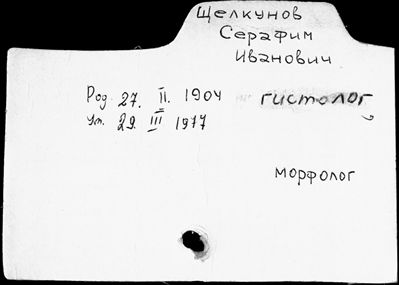 Щелкунов
Серафим
Иванович
Род. 27. II. 1904 гистолог
Ум. 29. III 1977
морфолог